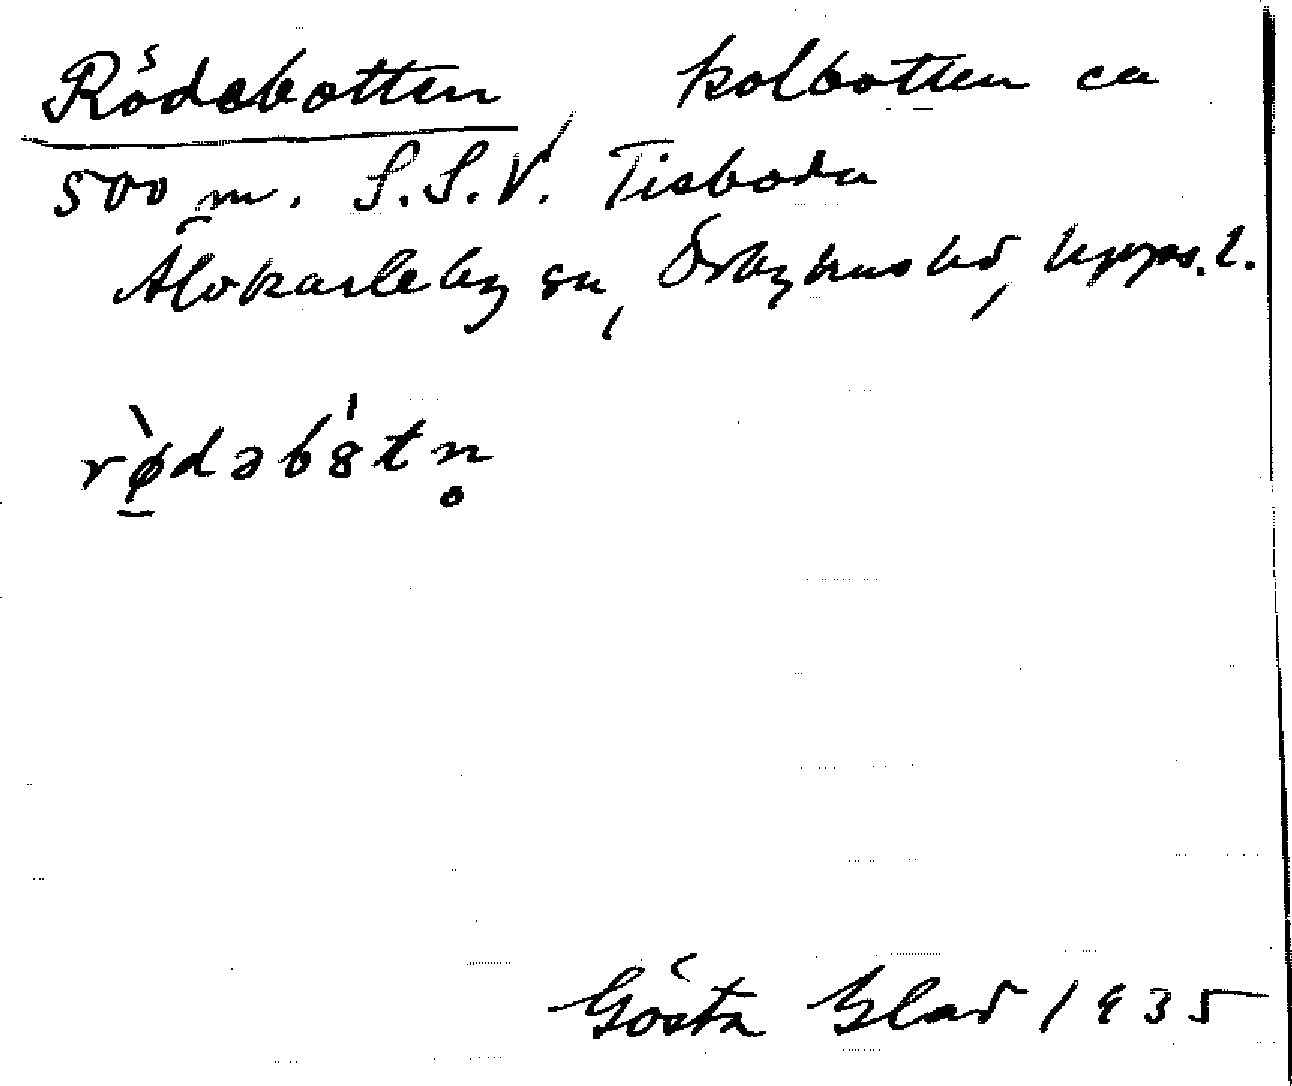 Rödebotten, kolbotten ca
500 m. S.S.V. Tisboda
Älvkarleby sn, Örbyhus hd, Upps. l.
rø̱̀dəb8́tn̥
Gösta Blad 1935